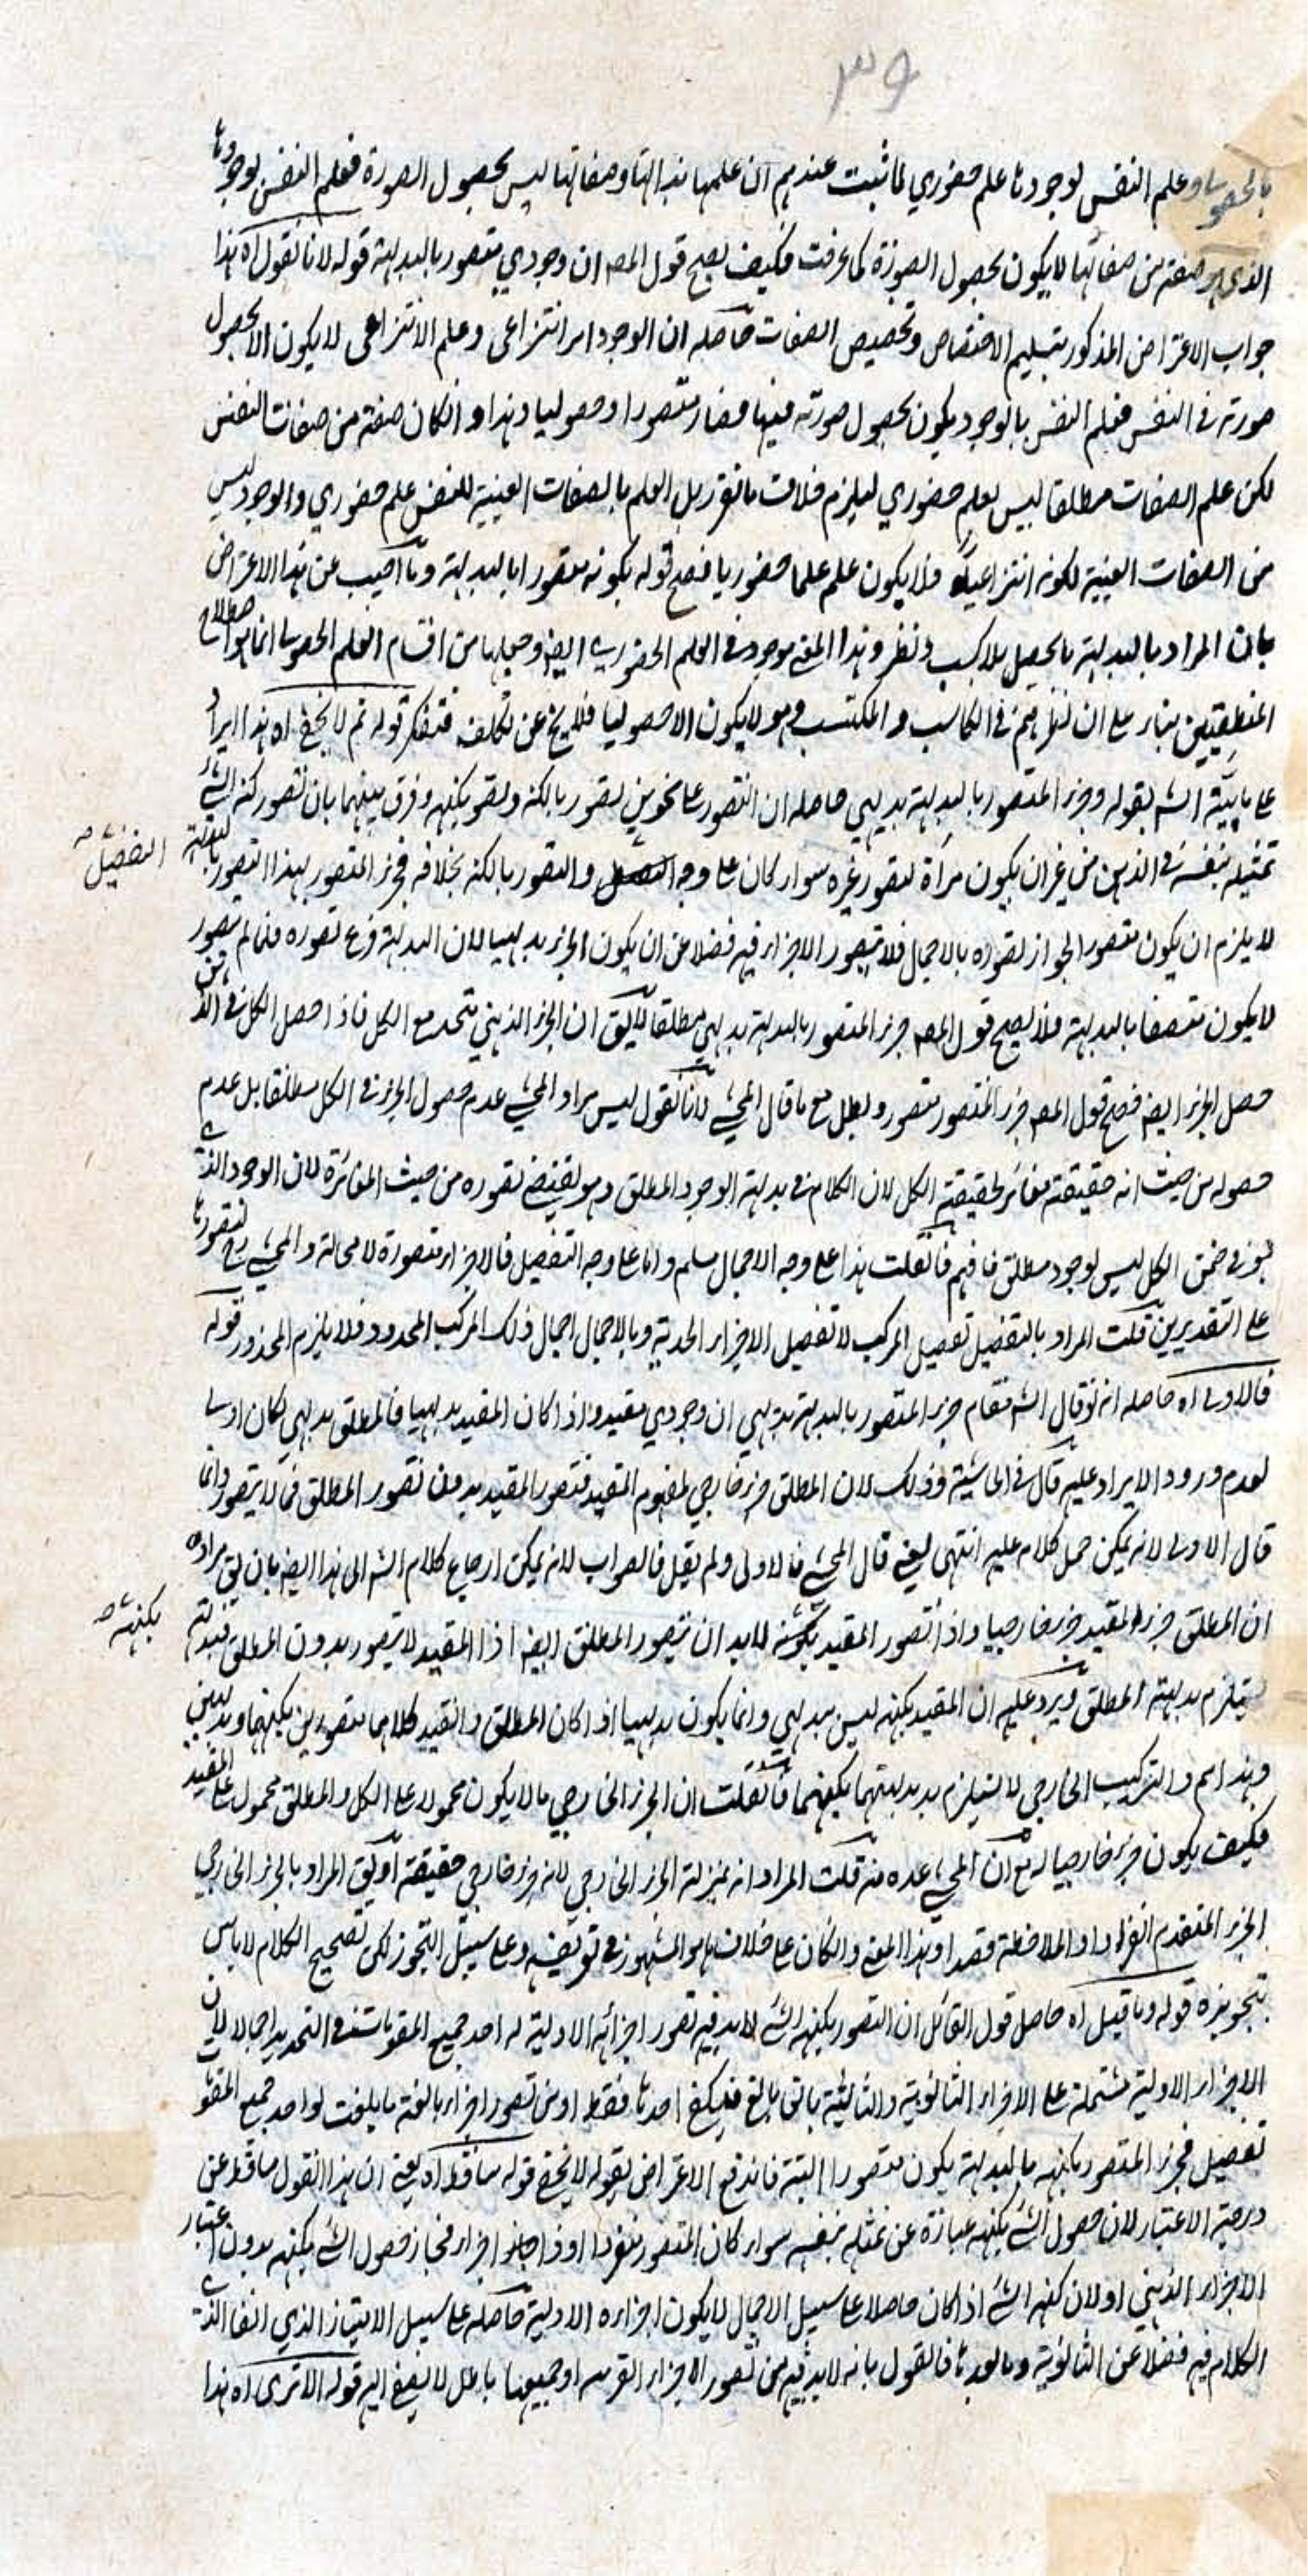 ٣٩
بالحصولي وعلم النفس لوجودها علم حضوري لما ثبت عندهم ان علمها بذاتها وصفاتها ليس بحصول الصورة فعلم النفس لوجودها
الذي هو صفته من صفاتها لا يكون بحصول الصورة كما عرفت فكيف يصح قول المصه ان وجودي متصور بالبديهة قوله لانا نقول اه هذا
جواب الاعتراض المذكور بتسليم الاختصاص وتخصيص الصفات حاصله ان الوجود امر انتزاعي وعلم الانتزاعي لا يكون الا بحصول
صورته في النفس فعلم النفس بالوجود يكون بحصول صورته فيها فصار متصورا وحصوليا وهذا وانكان صفته من صفات النفس
لكن علم الصفات مطلقا ليس بعلم حضوري ليلزم خلاف ما تقرر بل العلم بالصفات العينية للنفس علم حضوري والوجود ليس
من الصفات العينية لكونه انتزاعيا فلا يكون علمه علما حضوريا فصح قوله بكونه متصورا بالبديهة وما اجيب عن هذا الاعتراض
بان المراد بالبديهة ما يحصل بلا كسب ونظر وهذا المعنى موجود في العلم الحضوري ايضه وجعلها من اقسام العلم الحصولي انما هو اصطلاح
المنطقيين بناء على ان نظرهم في الكاسب والمكتسب وهو لا يكون الا حصوليا فلا يخ عن تكلف فتفكر قوله ثم لا يخفى اه هذا ايراد
على ما بينه الشه بقوله وجزء المتصور بالبديهة بديهي حاصله ان التصور على نحوين تصور بالكنه وتصور بكنهه وفرق بينهما بان تصور كنه الشئ
تمثيله بنفسه في الذهن من غير ان يكون مرآة لتصور غيره سواء كان على وجه التفصيل والتصور بالكنه بخلافه فجزء المتصور بهذا التصور بالبديهة
التفصيل صه
لا يلزم ان يكون متصورا لجواز تصوره بالاجمال فلا يتصور الاجزاء فيه فضلا عن ان يكون الجزء بديهيا لان البديهة فرع تصوره فما لم يتصور
لا يكون متصفا بالبديهة فلا يصح قول المصه جزء المتصور بالبديهة بديهي مطلقا لا يق ان الجزء الذهني متحد مع الكل فاذا حصل الكل في الذهن
حصل الجزء ايضه فصح قول المصه جزء المتصور متصور وبطل مع ما قال المحشي لانا نقول ليس مراد المحشي عدم حصول الجزء في الكل مطلقا بل عدم
حصوله من حيث انه حقيقته مغائر لحقيقة الكل لان الكلام في بديهة الوجود المطلق وهو يقتضي تصوره من حيث المغائرة لان الوجود الذي
هو في ضمن الكل ليس لوجود مطلق فافهم فانقلت هذا على وجه الاجمال مسلم واما على وجه التفصيل فالاجزاء متصورة لا محالة والمحشي
على التقديرين قلت المراد بالتفصيل تفصيل المركب لا تفصيل الاجزاء الحدية وبالاجمال اجمال ذلك المركب المحدود فلا يلزم المحذور قوله
فالاولى اه حاصله انه لو قال الشه مقام جزء المتصور بالبديهة بديهي ان وجودي مقيد واذا كان المقيد بديهيا فالمطلق بديهي لكان اولى
لعدم ورود الايراد عليه قال في الحاشية وذلك لان المطلق جزء خارجي لمفهوم المقيد فتصور المقيد بدون تصور المطلق مما لا يتصور وانما
قال الاولى لانه يمكن حمل كلامه عليه انتهى يعني قال المحشي فالاولى ولم يقل فالصواب لانه يمكن ارجاع كلام الشه الى هذا ايضه بان يق مراده
ان المطلق جزء لمقيد جزء خارجيا واذا تصور المقيد بكنهه لابد ان يتصور المطلق ايضه اذ المقيد لا يتصور بدون المطلق فبديهته
بكنهه صه
يستلزم بديهة المطلق ويرد عليه ان المقيد بكنهه ليس ببديهي وانما يكون بديهيا اذا كان المطلق والتقييد كلاهما متصورين بكنههما وبديهيين
وهذا مم والتركيب الخارجي لا يستلزم بديهتهما بكنههما فانقلت ان الجزء الخارجي ما لا يكون محمولا على الكل والمطلق محمول على المقيد
فكيف يكون جزء خارجيا له مع ان المحشي عده منه قلت المراد انه بمنزلة الجزء الخارجي لانه جزء خارجي حقيقة او يق المراد بالجزء الخارجي
الجزء المتقدم انفرادا والملاحظة قصدا وهذا المعنى وانكان على خلاف ما هو المشهور في تعريفه وعلى سبيل التجوز لكن تصحيح الكلام لا باس
بتجويزه قوله وما قيل اه حاصل قول القائل ان التصور بكنهه الشئ لابد فيه تصور اجزائه الاولية له احد جميع المقومات في التحديد اجمالا لان
الاجزاء الاولية مشتملة على الاجزاء الثانوية والثالثية بالغ ما بلغ فيكفي احدها فقط او من تصور اجزاء بالغة ما بلغت لو احد جميع المقومات
تفصيل فجزء المتصور بكنهه بالبديهة يكون متصورا البتة فاندفع الاعتراض بقوله لا يخفى قوله ساقط اه يعني ان هذا القول ساقط عن
درجة الاعتبار لان حصول الشئ بكنهه عبارة عن تمثله بنفسه سواء كان المتصور منفردا او ذا اجزاء فجاز حصول الشئ بكنهه بدون اعتبار
الاجزاء الذهني او لان كنه الشئ اذا كان حاصلا على سبيل الاجمال لا يكون اجزاءه الاولية حاصله على سبيل الامتياز الذي
الكلام فيه فضلا عن الثانوية وما بعدها فالقول بانه لابد فيه من تصور الاجزاء القريبه او جميعها باطل لا يصغى اليه قوله الا ترى اه هذا